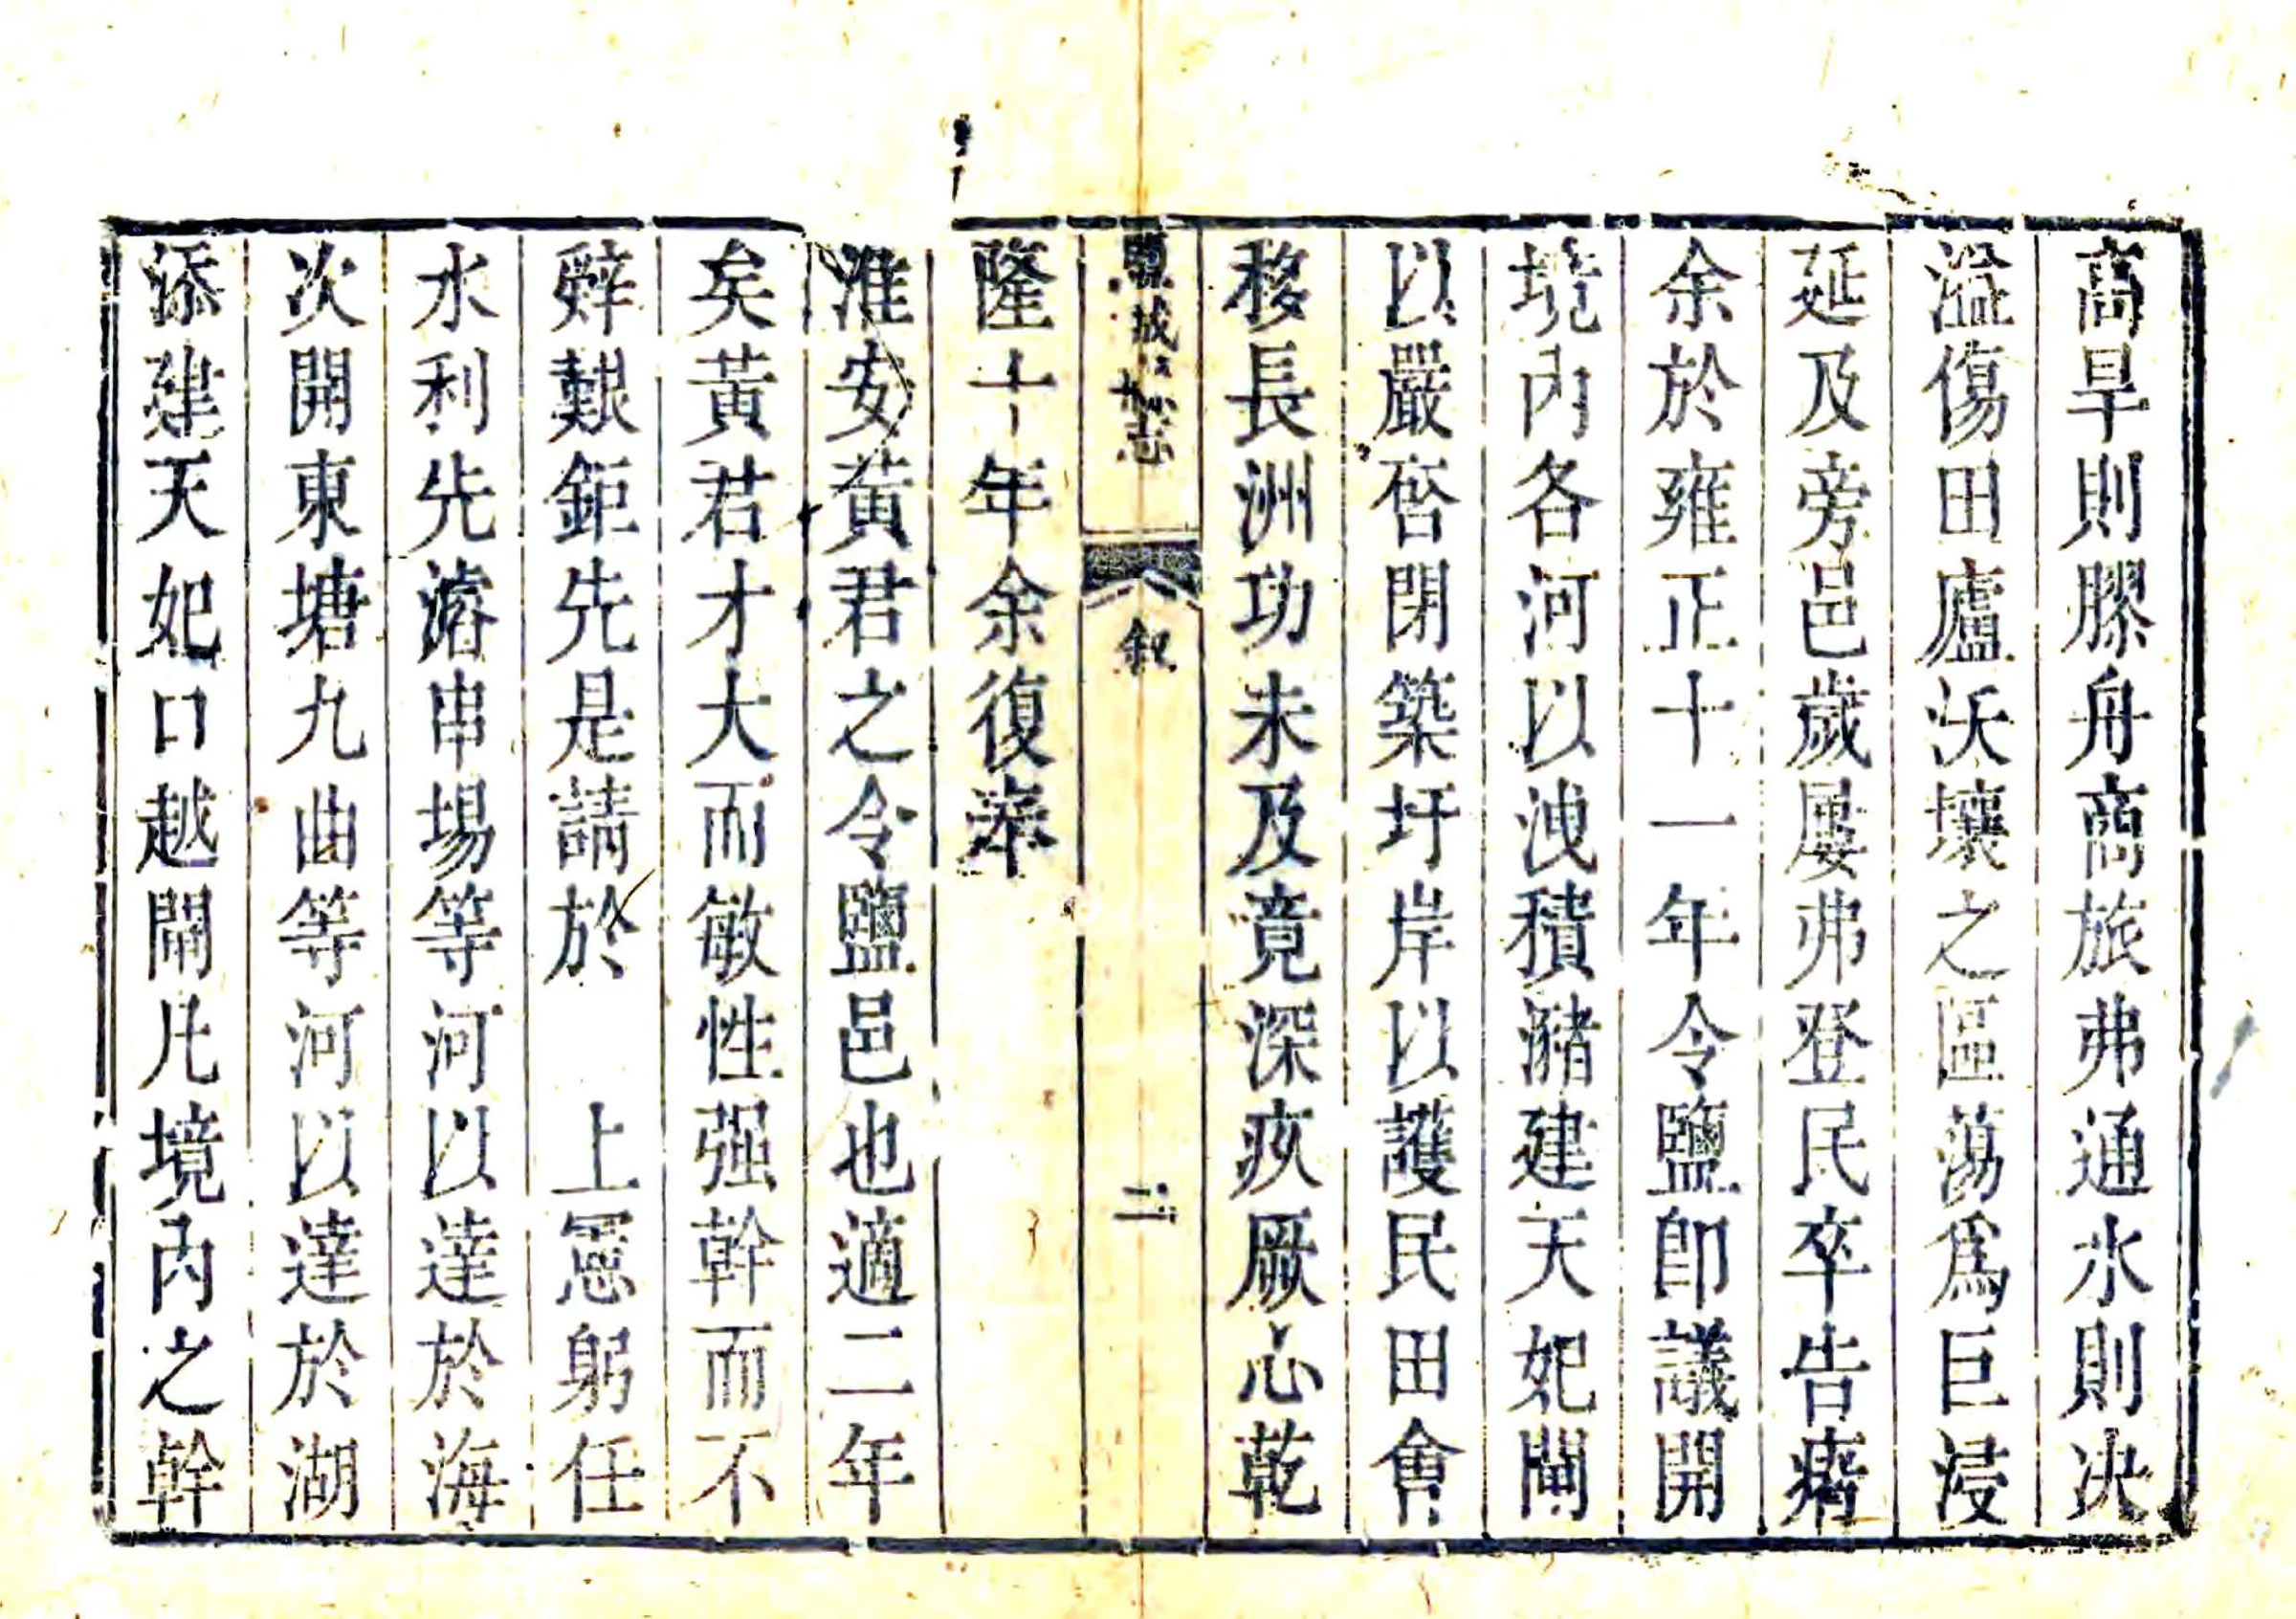 高旱則膠舟商旅弗通水則决
溢傷田廬沃壤之區蕩爲巨浸
延及旁邑歲屢弗登民卒告瘠
余於雍正十一年令鹽即議開
境內各河以洩積瀦建天妃閘
以嚴啓閉築圩岸以護民田會
移長洲功未及竟深疚厥心乾
鹽城縣志 叙 二
隆十年余復
淮安黃君之令鹽邑也適二年
矣黃君才大而敏性强幹而不
辭艱鉅先是請於 上憲躬任
水利先濬串場等河以達於海
次開東塘九曲等河以達於湖
添建天妃口越閘凡境內之幹